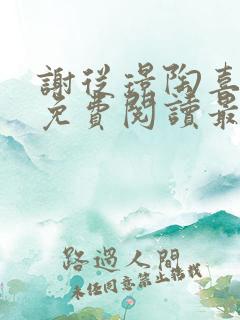 謝從璟陶喜
免費閱讀最
路過人間
未经同意禁止转载